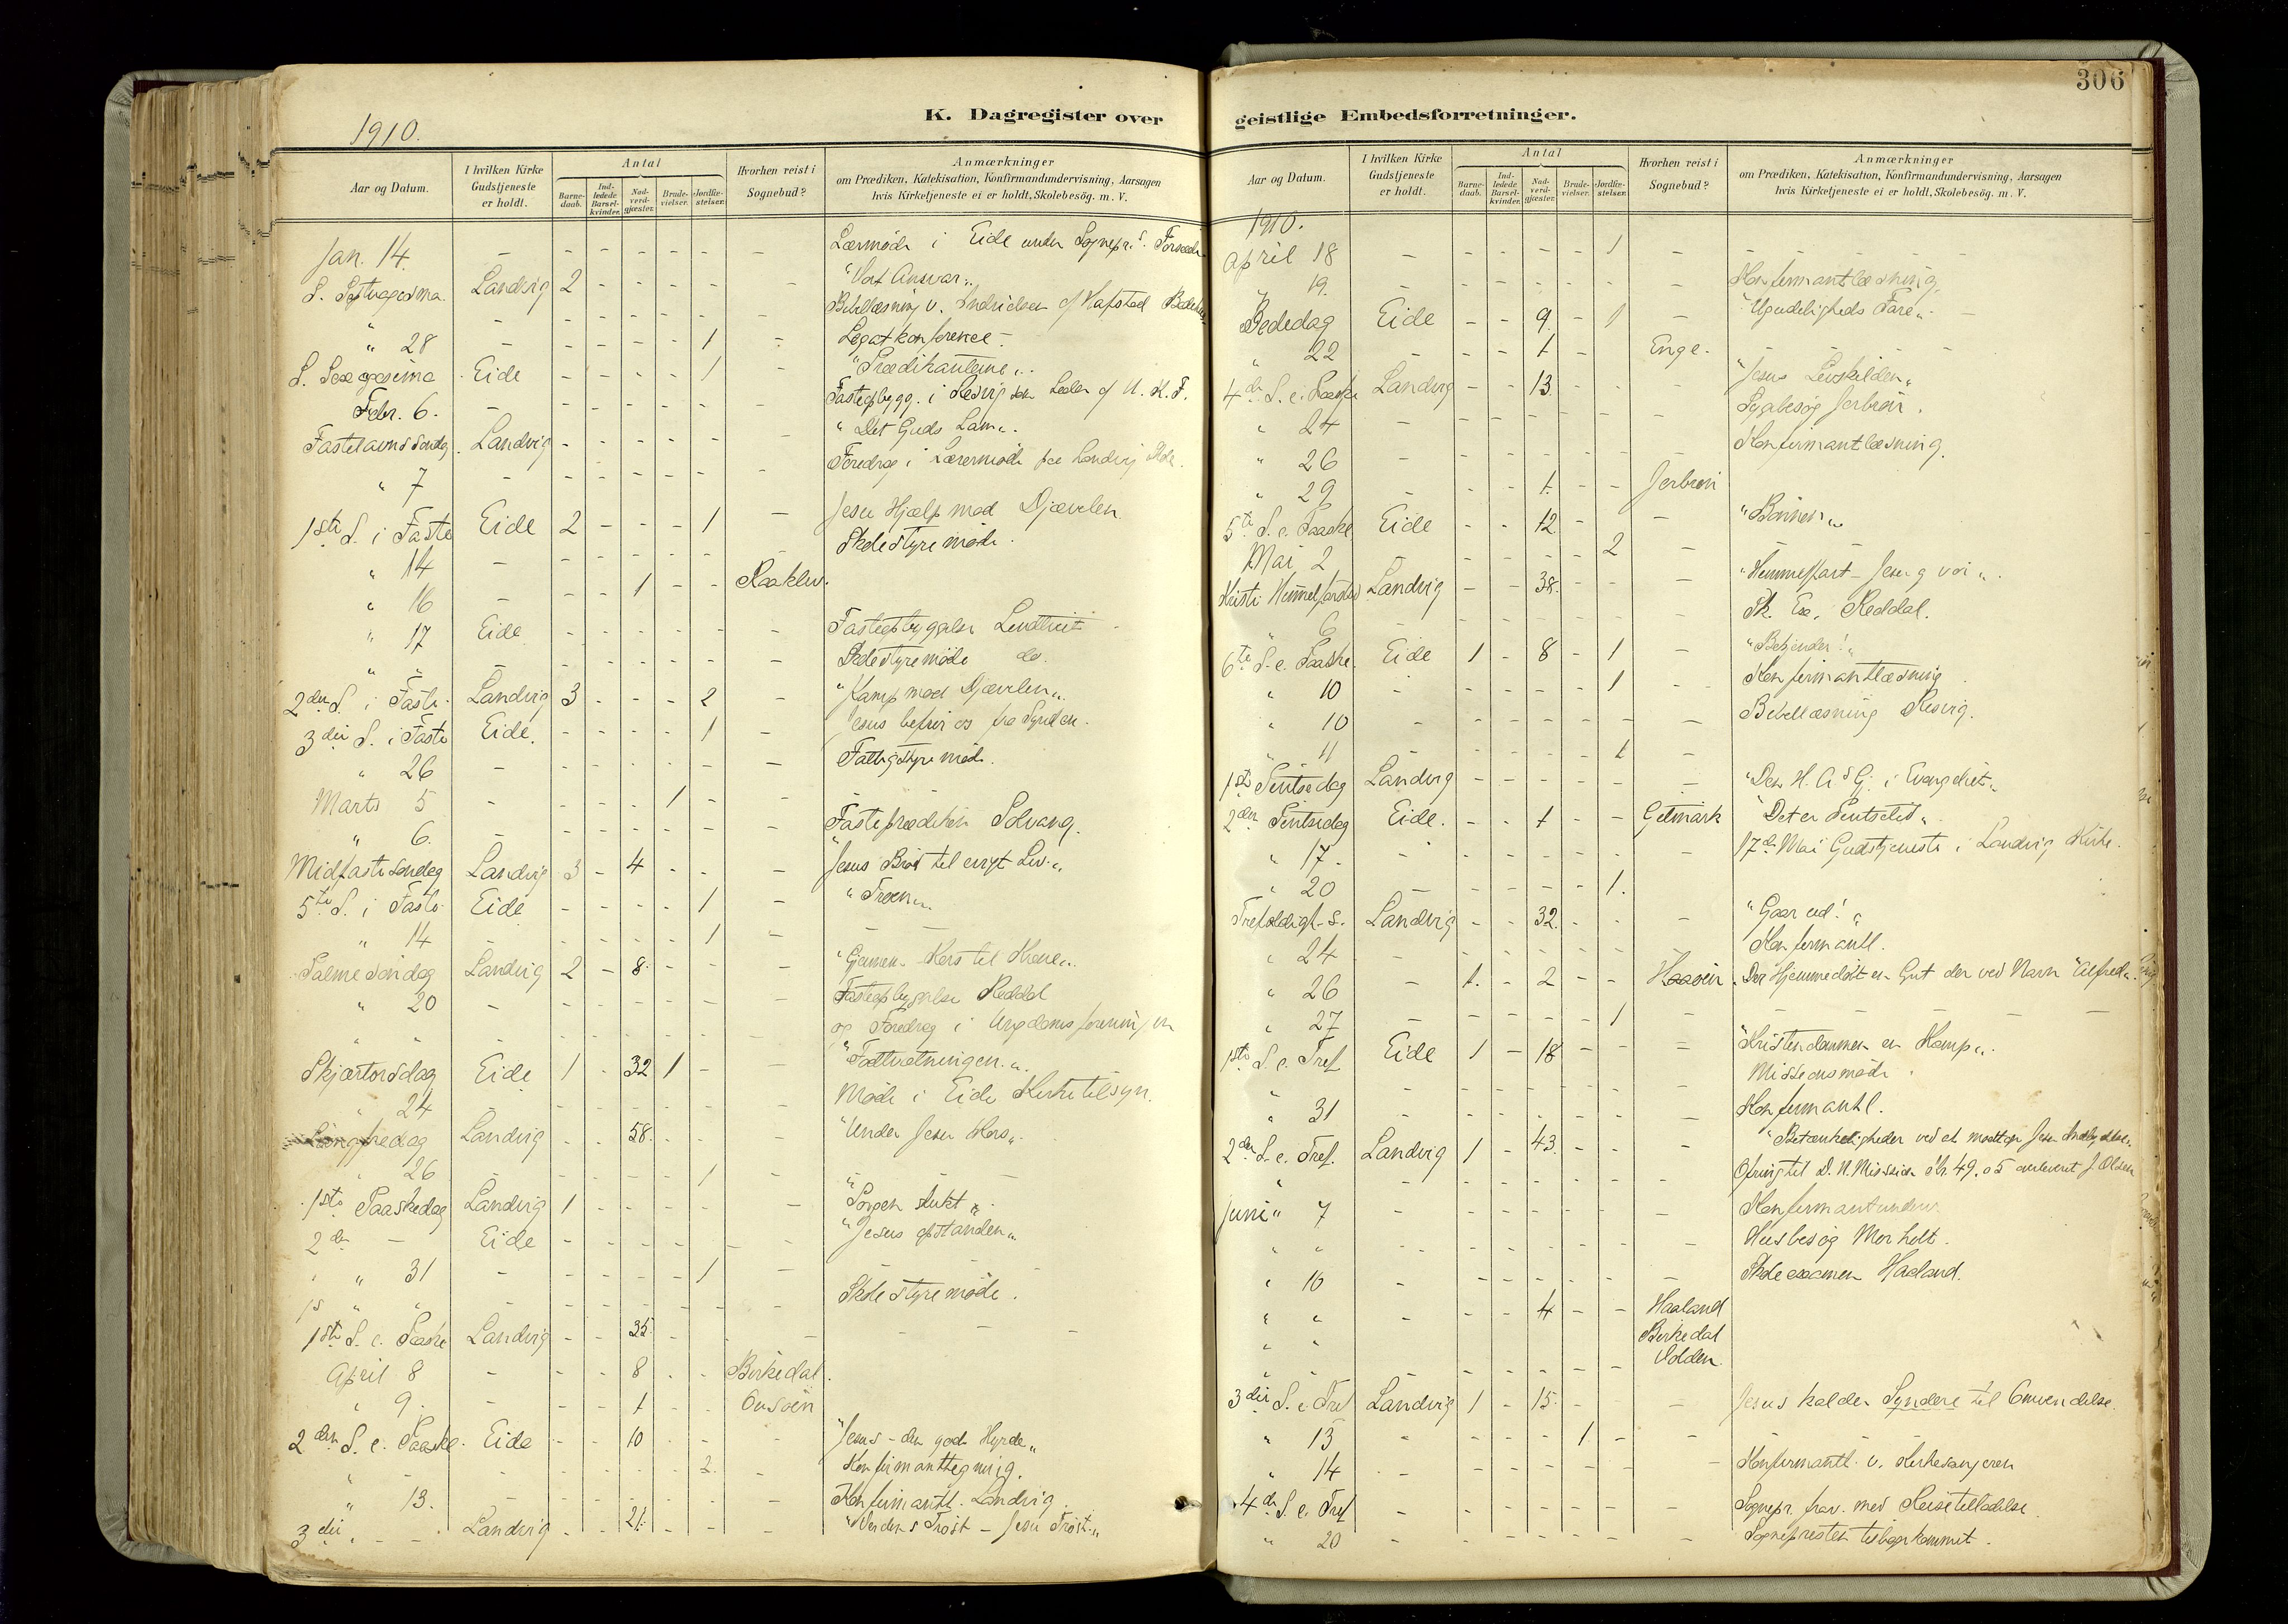 1910.
K. Dagregister over
Aar og Datum. I hvilken Kirke Gudstjeneste er holdt. Antal Barnedaab. Indledede Barselkvinder. Nadverdgjæster. Brudevielser. Jordfæstelser. Hvorhen reist i Sognebud? Anmærkninger om Prædiken, Katekisation, Konfirmandundervisning, Aarsagen hvis Kirketjeneste ei er holdt, Skolebesög. m. V.
Jan. 14. - - - - - - - i Eide under Sognepr.s
S. Septuagesima. Landvig 2 - - - - - "Vort Ansvar"
- - - - - - - Bibellæsning v.
" 28 - - - - - 1 - Legatkonference -
S. Sexagesima Eide - - - - 1 -
Febr. 6. - - - - - - - i
Fastelavns Søndag. Landvig - - - - - - "Det Guds Lam".
" 7 - - - - - - - Foredrag i Lærermøde paa Landvig
1ste S. i Faste Eide 2 - - - 1 - Jesu Hjælp mod Djævelen
" 14 - - - - - - - Skolestyremøde.
" 16 - - - 1 - - Raaklev.
" 17 Eide - - - - - - Fasteopbyggelse
" - - - - - - - Skolestyremøde do.
2den S. i Faste. Landvig 3 - - - 2 - "Kamp mod Djævelen".
3die S. i Faste Eide. - - - - 1 - Jesus befrier os fra Synden.
" 26 - - - - - - - Fattigstyremøde.
Marts 5 - - - - 1 - -
" 6. - - - - - - - Fasteprædiken Solvang.
Midfaste Søndag Landvig 3 - 4 - - - "Jesus Brød til evigt Liv."
5te S. i Faste Eide - - - - 1 - "Troen"
" 14 - - - - - 1 -
Palmesøndag Landvig 2 - 8. - - - "Gjennem Kors til Krone".
" 20 - - - - - - - Fasteopbyggelse Reddal
" " - - - - - - og Foredrag i Ungdomsforeningen
Skjærtorsdag Eide 1 - 32 1 - - "Fodtvætningen."
" 24 - - - - - - Møde i Eide Kirketilsyn.
Langfredag Landvig - - 58. - - - "Under Jesu Kors".
" 26 - - - - - 1 -
1ste Paaskedag Landvig 1 - - - - - "Sorgen slukt".
2den - Eide - - - - - - "Jesus opstanden"
" 31 - - - - - 1 -
" " - - - - - - Skolestyremøde.
1ste S. e. Paaske Landvig - - 35. - - - - - -
April 8 - - - 8 - - Birkedal.
" 9. - - - 1 - -
2den S. e. Paaske. Eide - - 10 - - - "Jesus - den gode Hyrde"
" - - - - - 2. - Konfirmanttegning.
" 13. - - - - - - - Konfirmantl. Landvig.
3die " - - Landvig - - 21. - - - "Verdens Trøst - Jesu Trøst."
306
geistlige Embedsforretninger.
Aar og Datum. I hvilken Kirke Gudstjeneste er holdt. Antal Barnedaab. Indledede Barselkvinder. Nadverdgjæster. Brudevielser. Jordfæstelser. Hvorhen reist i Sognebud? Anmærkninger om Prædiken, Katekisation, Konfirmandundervisning, Aarsagen hvis Kirketjeneste ei er holdt, Skolebesög. m. V.
1910.
April 18 - - - - - 1 - - - -
" 19. - - - - - - - Konfirmantlæsning.
Bededag Eide - - 9. - 1 - "Ugudeligheds Fare".
" 22 - - - 1 - Enge.
4de S. e. Paaske Landvig - - 13. - - - "Jesus Livskilden"
" 24 - - - - - - - Sygebesøg
" 26 - - - - - - - Konfirmantlæsning.
" 29 - - - 1. - -
5te S. e. Paaske Eide - - 12. - - "Bønnen"
Mai 2 - - - - - 2 -
Kristi Himmelfartsdag Landvig - - 38. - - - "Himmelfart - Jesu og vor".
" 6 - Sk. Ex. Reddal.
6te S. e. Paaske. Eide 1 - 8 - 1 - "Bekjender!"
" 10 - - - - - 1 - Konfirmantlæsning.
" 10 - - - - - - - Bibellæsning Resvig.
" 11 - - - - - 1 -
1ste Pintsedag Landvig - - - - - - "Den H. A.s Gj. i Evangeliet"
2den Pintsedag Eide. - - 1 - - "Det er Pintsetid".
" 17. - - - - - - - 17de Mai Gudstjeneste i Landvig Kirke.
" 20 - - - - - 1.
Trefoldigh. S. Landvig - - 32. - - - "Gaar ud!"
" 24 - - - - - - Konfirmantl.
" 26 - 1. - 2 - - Haaøen. Døbt Hjemmedøbt en Gut der ved Navn "Alfred".
" 27 - - - - - 1 - - - -
1ste S. e. Tref. Eide 1 - 18 - - - "Kristendommen en Kamp".
- - - - - - Missionsmøde.
" 31 - - - - - - - Konfirmantl.
2den S. e. Tref. Landvig 1 - 43. - - - "Betænkeligheder ved at modtage Jesu Indbydelse".
" - - - - - - - Ofring til D. N. Mission Kr. 49.05 J. Olsen
Juni " 7 - - - - - - - Konfirmantunderv.
" " - - - - - - - Husbesøg Morholt.
" 10 - - - - - - - Skoleexamen Haaland.
" " - - - 4 - - Haaland
" " Birkedal
Volden.
3die S. e. Tref Landvig 1 - 15. - - - Jesus kalder Syndere til Omvendelse.
" 13 - - - - 1 - -
" 14 - - - - - - - Konfirmantl. v. Kirkesangeren
4de S. e. Tref - - - - - - - Sognepr. frav. med Reisetilladelse.
" 20 - - - - - - - Sognepresten tilbagekommet.